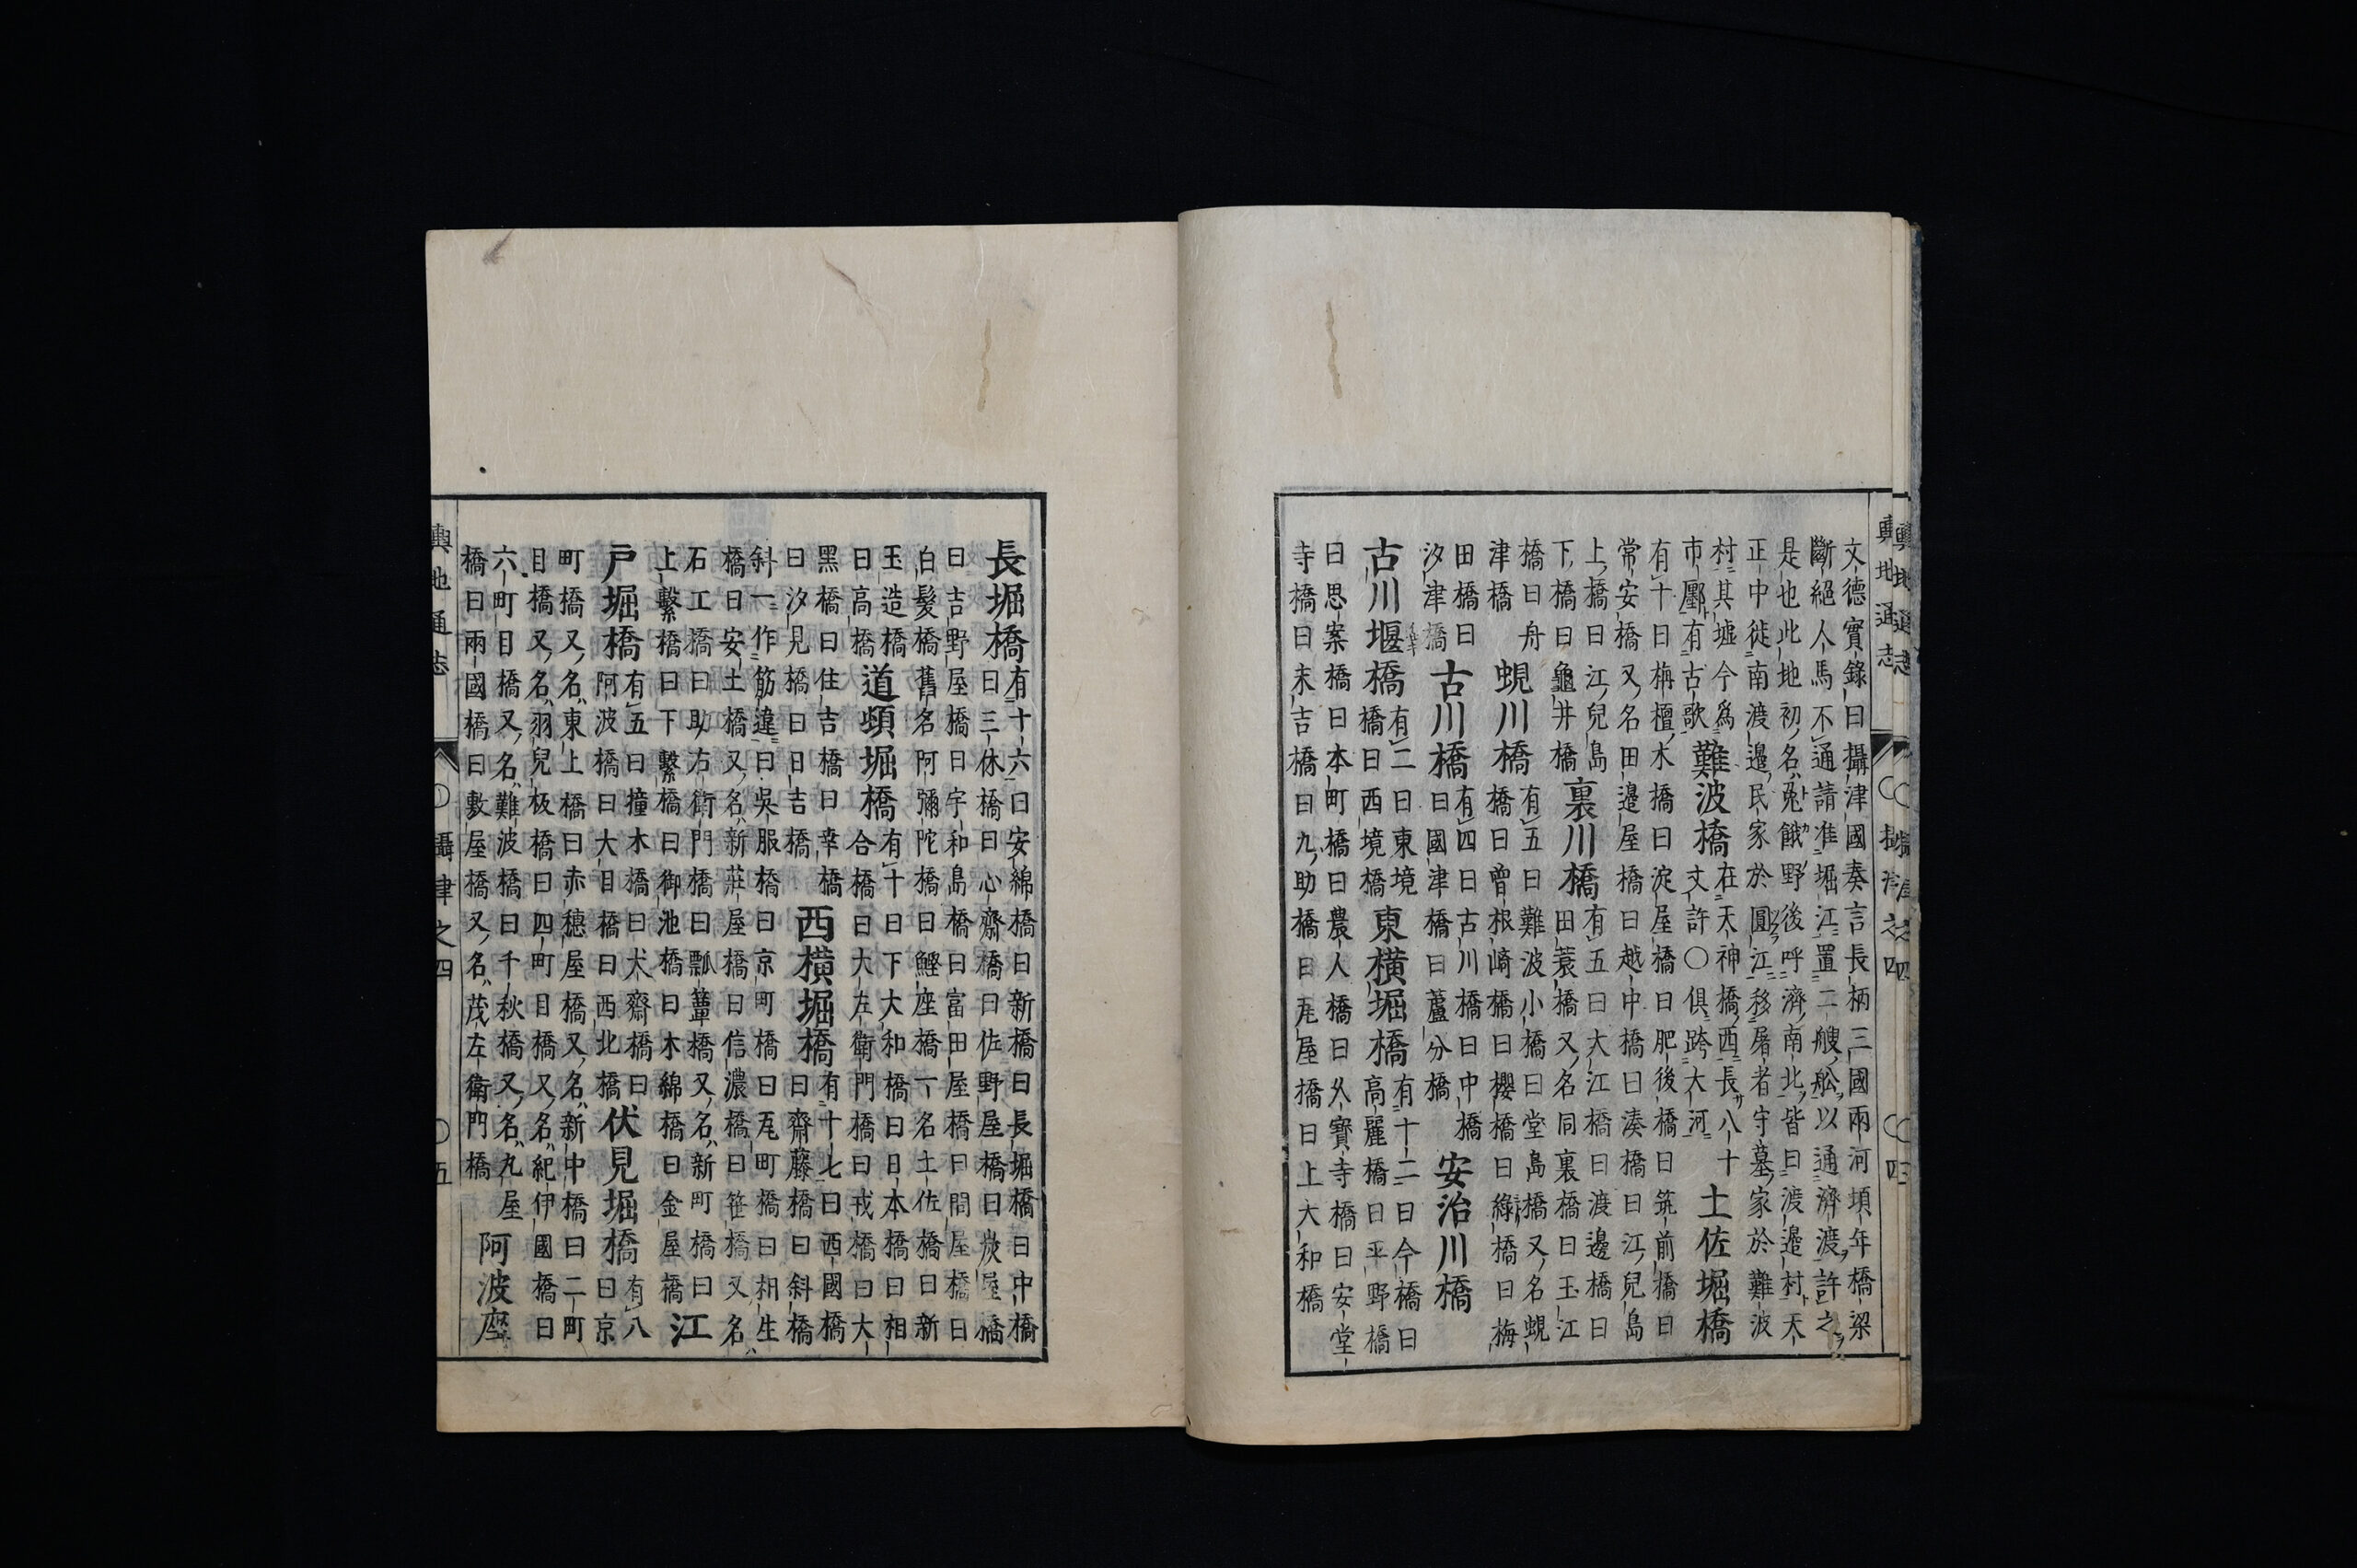 文德實錄曰攝津國奏言長柄三國兩河頃年橋梁
斷絕人馬不通請准堀江置二艘舩以通濟渡許之
是也此地初名菟餓野後呼濟南北皆曰渡邉村天
正中徙南渡邉民家於圓江移屠者守墓家於難波
村其墟今爲
市鄽有古歌
難波橋
在天神橋西長八十
丈許○俱跨大河
土佐堀橋
有十曰栴檀木橋曰淀屋橋曰肥後橋曰筑前橋曰
常安橋又名田邉屋橋曰越中橋曰湊橋曰江兒島
上橋曰江兒島
下橋曰龜井橋
裏川橋
有五曰大江橋曰渡邊橋曰
田蓑橋又名同裏橋曰玉江
橋曰舟
津橋
蜆川橋
有五曰難波小橋曰堂島橋又名蜆
橋曰曾根崎橋曰櫻橋曰綠橋曰梅
田橋曰
汐津橋
古川橋
有四曰古川橋曰中橋
曰國津橋曰蘆分橋
安治川橋
古川堰橋
有二曰東境
橋曰西境橋
東橫堀橋
有十二曰今橋曰
高麗橋曰平野橋
曰思案橋曰本町橋曰農人橋曰久寶寺橋曰安堂
寺橋曰末吉橋曰九助橋曰瓦屋橋曰上大和橋
輿地通志
攝津之四
四
長堀橋
有十六曰安綿橋曰新橋曰長堀橋曰中橋
曰三休橋曰心齋橋曰佐野屋橋曰炭屋橋
曰吉野屋橋曰宇和島橋曰富田屋橋曰問屋橋曰
白髮橋舊名阿彌陀橋曰鰹座橋一名土佐橋曰新
玉造橋
曰高橋
道頓堀橋
有十曰下大和橋曰日本橋曰相
合橋曰大左衛門橋曰戎橋曰大
黑橋曰住吉橋曰幸橋
曰汐見橋曰日吉橋
西橫堀橋
有十七曰西國橋
曰齋藤橋曰斜橋
斜一作筋違曰吳服橋曰京町橋曰瓦町橋曰相生
橋曰安土橋又名新莊屋橋曰信濃橋曰笹橋又名
石工橋曰助右衛門橋曰瓢簞橋又名新町橋曰
上繫橋曰下繫橋曰御池橋曰木綿橋曰金屋橋
江
戸堀橋
有五曰撞木橋曰犬齋橋曰
阿波橋曰大目橋曰西北橋
伏見堀橋
有八
曰京
町橋又名東上橋曰赤穗屋橋又名新中橋曰二町
目橋又名羽兒板橋曰四町目橋又名紀伊國橋曰
六町目橋又名難波橋曰千秋橋又名九屋
橋曰兩國橋曰敷屋橋又名茂左衛門橋
阿波座
輿地通志
攝津之四
五